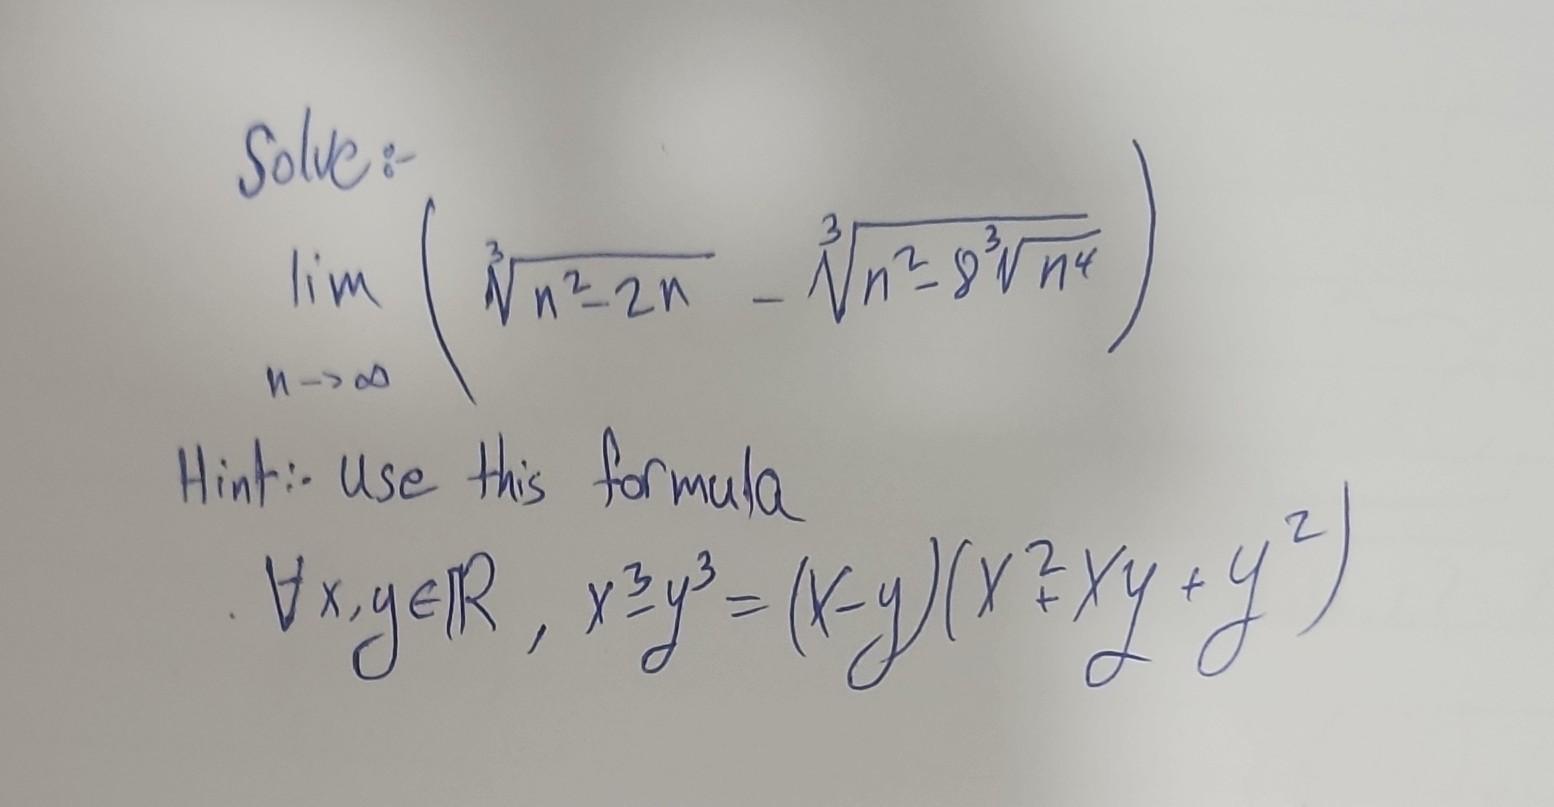 Solve :-
lim n->∞ ( ∛(n² - 2n) - ∛(n² - 8∛(n⁴)) )
Hint:- Use this formula
. ∀x,y∈ℝ, x³-y³ = (x-y)(x²+xy+y²)